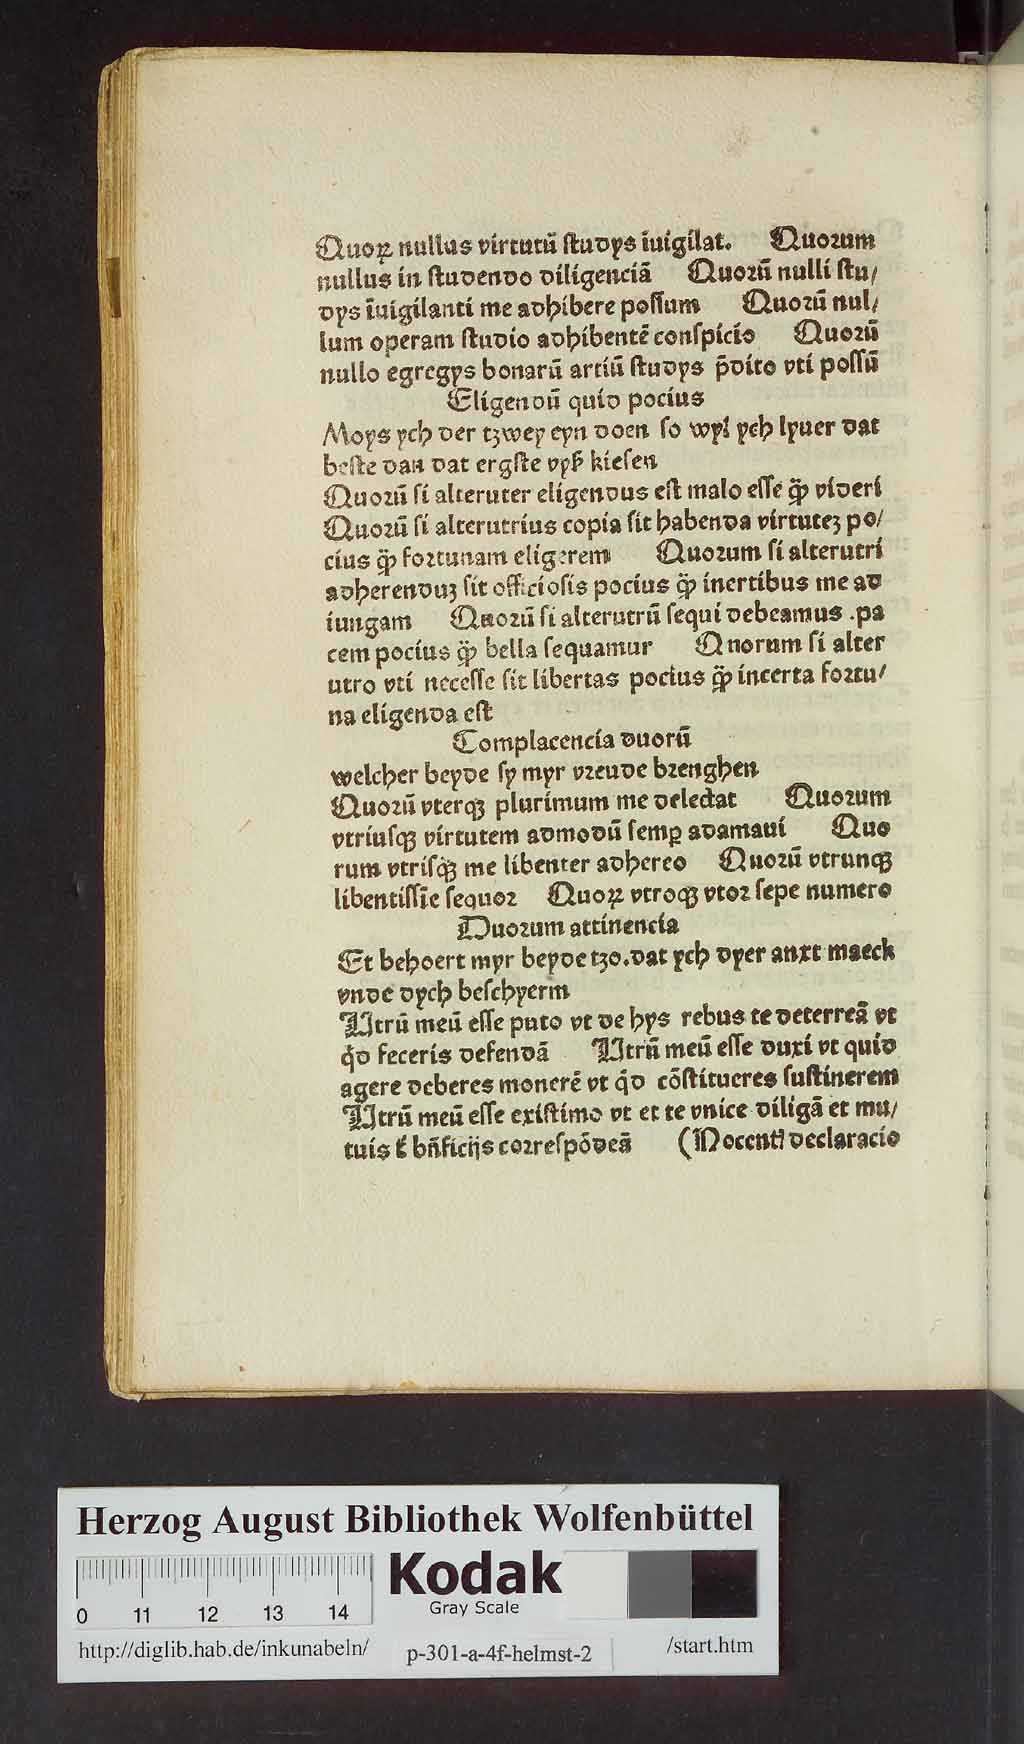 Quoꝝ nullus virtutū ſtudys īuigilat. Quorum
nullus in ſtudendo diligenciā Quorū nulli ſtu/
dys īuigilanti me adhibere poſſum Quorū nul/
lum operam ſtudio adhibentē conſpicio Quorū
nullo egregys bonarū artiū ſtudys p̄dito vti poſſū
Eligendū quid pocius
Moys ych der tzwey eyn doen ſo wyl ych lyuer dat
beſte dan dat ergſte vyß kieſen
Quorū ſi alteruter eligendus eſt malo eſſe qꝫ̄ videri
Quorū ſi alterutrius copia ſit habenda virtuteꝫ po/
cius qꝫ̄ fortunam eligerem Quorum ſi alterutri
adherenduꝫ ſit officioſis pocius qꝫ̄ inertibus me ad
iungam Quorū ſi alterutrū ſequi debeamus .pa
cem pocius qꝫ̄ bella ſequamur Quorum ſi alter
utro vti neceſſe ſit libertas pocius qꝫ̄ incerta fortu/
na eligenda eſt
Complacencia duorū
welcher beyde ſy myr vreude brenghen
Quorū vterqꝫ plurimum me delectat Quorum
vtriuſqꝫ virtutem admodū ſemꝑ adamaui Quo
rum vtriſqꝫ me libenter adhereo Quorū vtrunqꝫ
libentiſſīe ſequor Quoꝝ vtroqꝫ vtor ſepe numero
Duorum attinencia
Et behoert myr beyde tzo.dat ych dyer anxt maeck
vnde dych beſchyerm
Utrū meū eſſe puto vt de hys rebus te deterreā vt
qd̄ feceris defendā Utrū meū eſſe duxi vt quid
agere deberes monerē vt qd̄ cōſtitueres ſuſtinerem
Utrū meū eſſe exiſtimo vt et te vnice diligā et mu/
tuis bn̄ficijs correſpōdeā (Nocent declaracio
Herzog August Bibliothek Wolfenbüttel
Kodak
Gray Scale
0 11 12 13 14
http://diglib.hab.de/inkunabeln/ p-301-a-4f-helmst-2 /start.htm